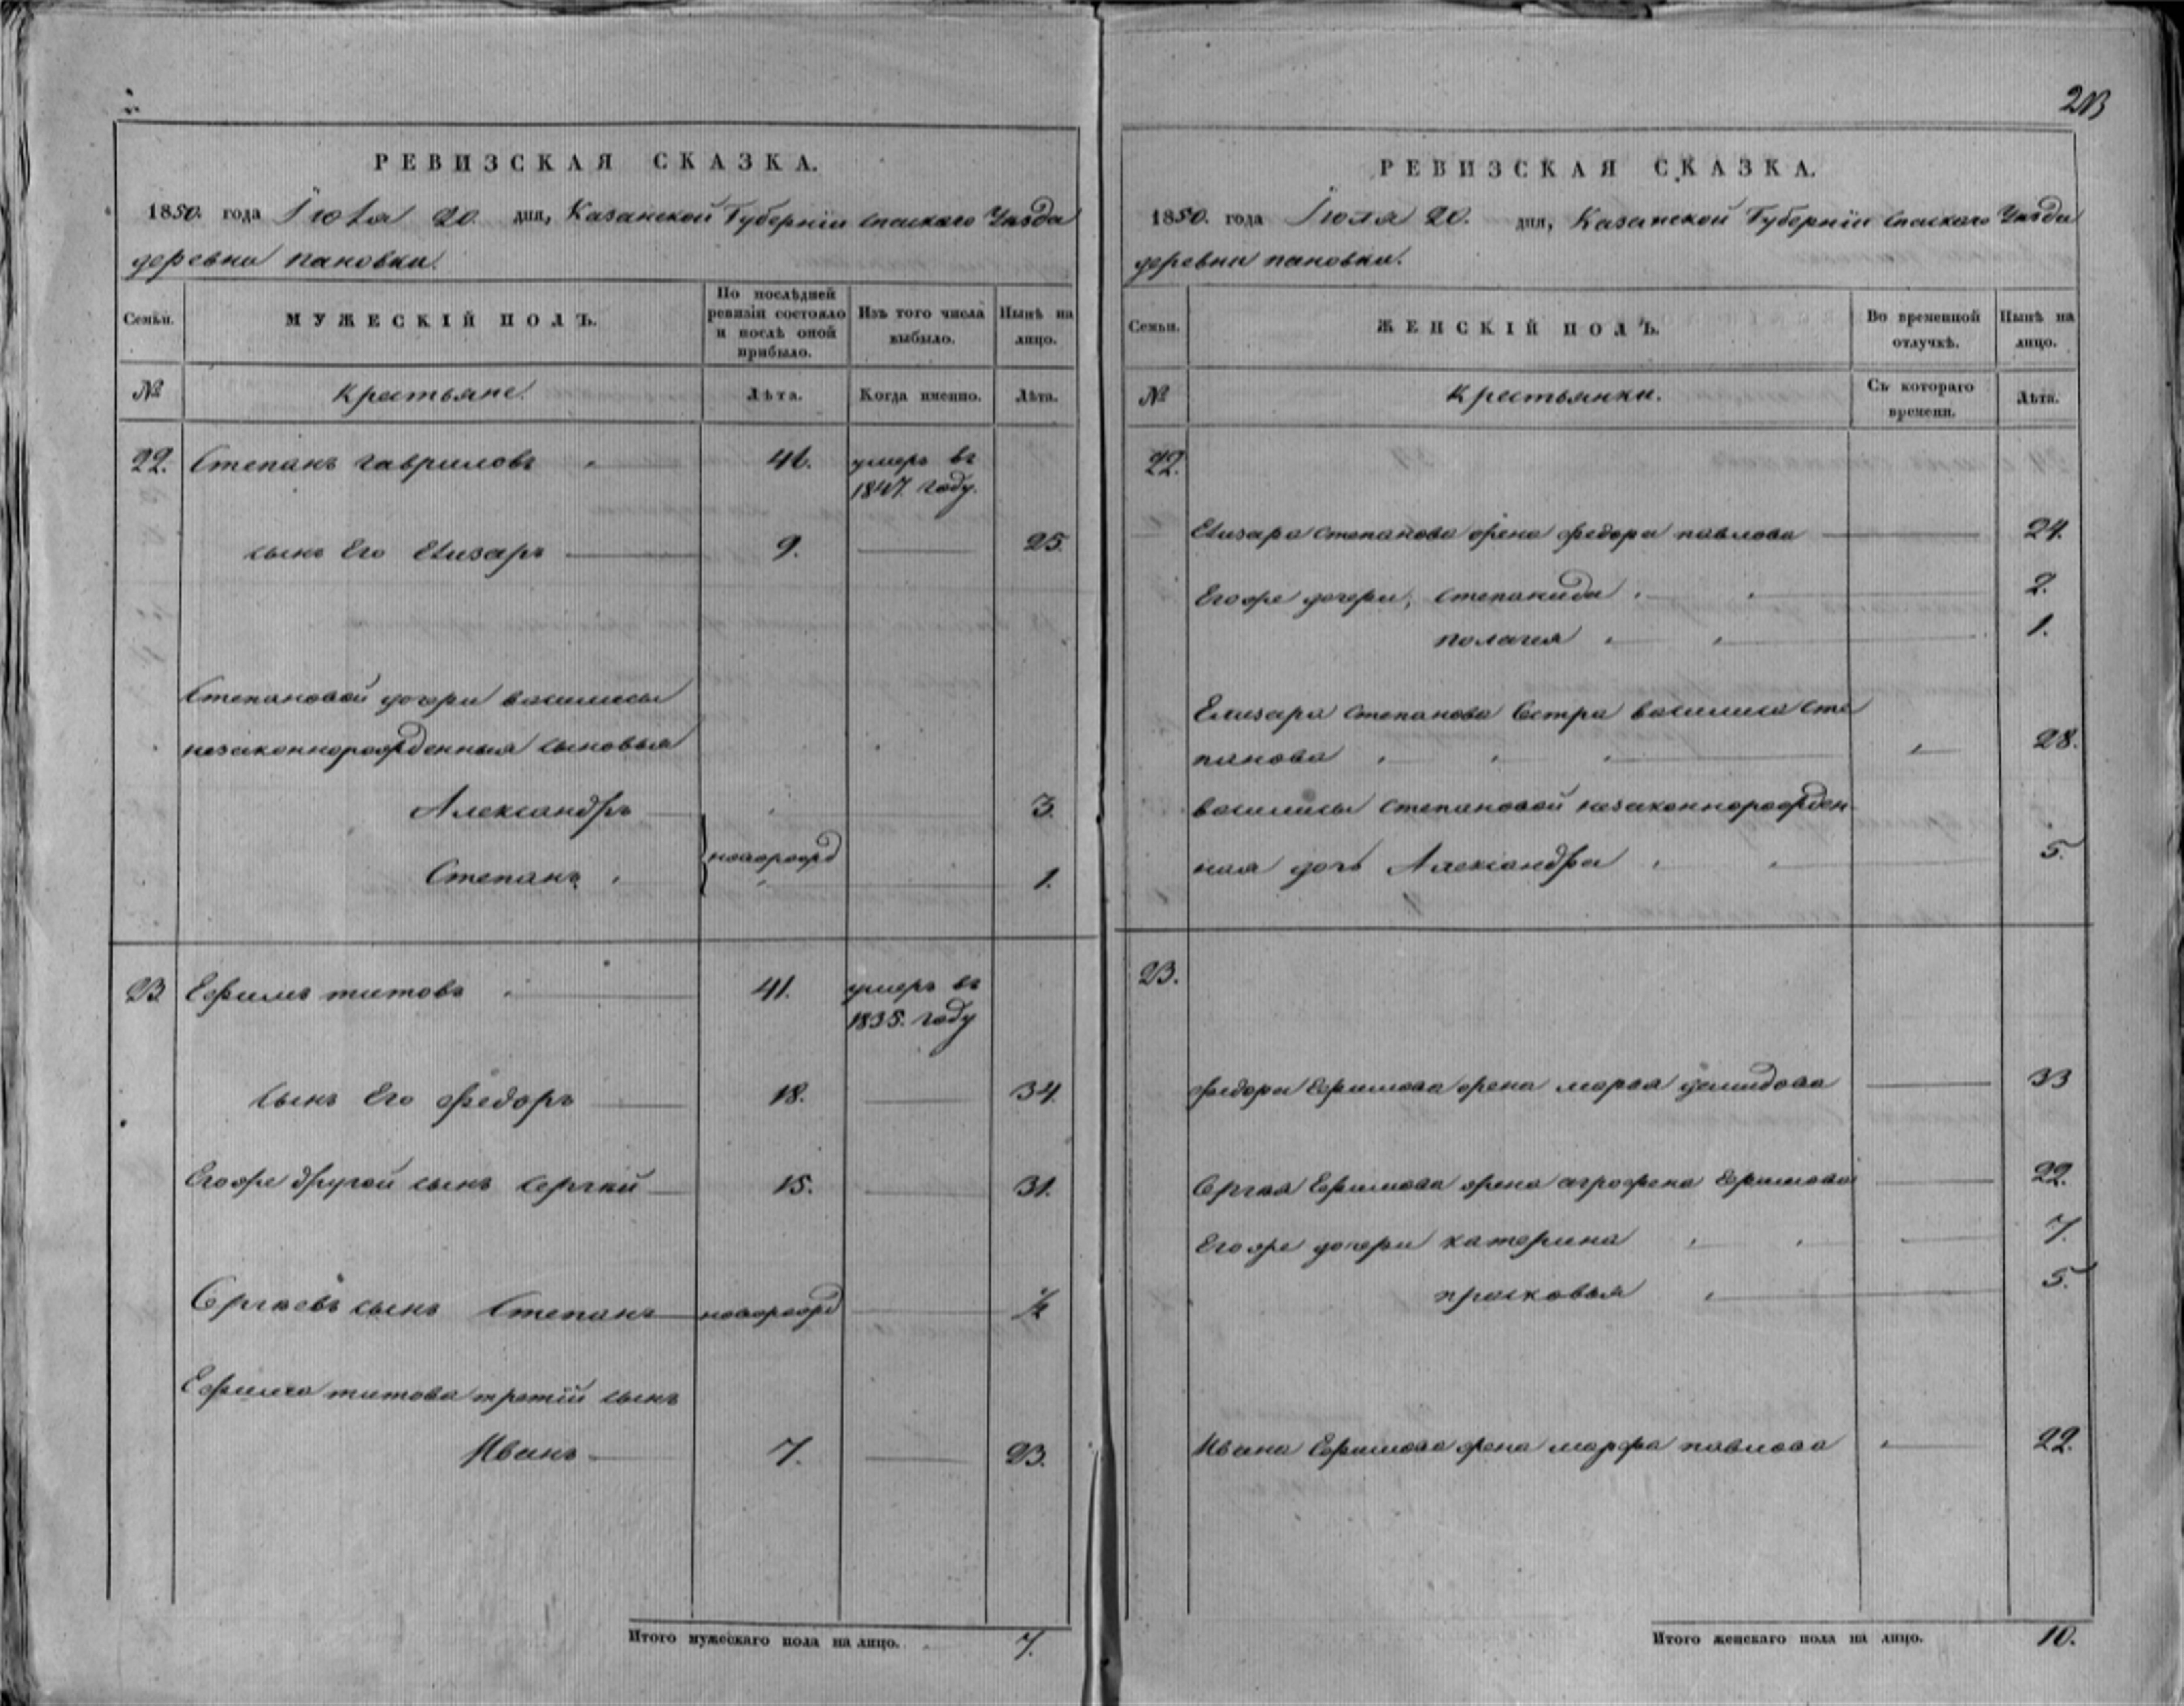 РЕВИЗСКАЯ СКАЗКА.
1850. года Іюля 20. дня, Казанской Губерніи спаскаго Уѣзда
деревни пановки.
Семьи.
МУЖЕСКІЙ ПОЛЪ.
По послѣдней ревизіи состояло и послѣ оной прибыло.
Изъ того числа выбыло.
Нынѣ на лицо.
№
Крестьяне.
Лѣта.
Когда именно.
Лѣта.
22. Степанъ гавриловъ 41. умеръ въ
1847. году.
сынъ Его Елизаръ 9. 25.
Степановой дочери василисы
незаконнорожденныя сыновья
Александръ 3.
новорожд
Степанъ 1.
23 Ефимъ титовъ 41. умеръ въ
1835. году
сынъ Его федоръ 18. 34.
Егоже другой сынъ сергѣй 15. 31.
Сергѣевъ сынъ Степанъ новорожд ½
Ефима титова третій сынъ
Иванъ 7. 23.
Итого мужескаго пола на лицо. 7.
23
РЕВИЗСКАЯ СКАЗКА.
1850. года Іюля 20. дня, Казанской Губерніи спаскаго Уѣзда
деревни пановки.
Семьи.
ЖЕНСКІЙ ПОЛЪ.
Во временной отлучкѣ.
Нынѣ на лицо.
№
Крестьянки.
Съ котораго времени.
Лѣта.
22.
Елизара степанова жена федора павлова 24.
Егоже дочери, степанида 2.
пологея 1.
Елизара степанова Сестра василиса сте
панова 28.
василисы степановой незаконнорожден
ная дочь Александра 5.
23.
федора Ефимова жена марва демидова 33
Сергѣя Ефимова жена аграфена Ефимова 22.
Егоже дочери катерина 7.
прасковья 5.
Ивана Ефимова жена марфа павлова 22.
Итого женскаго пола на лицо. 10.